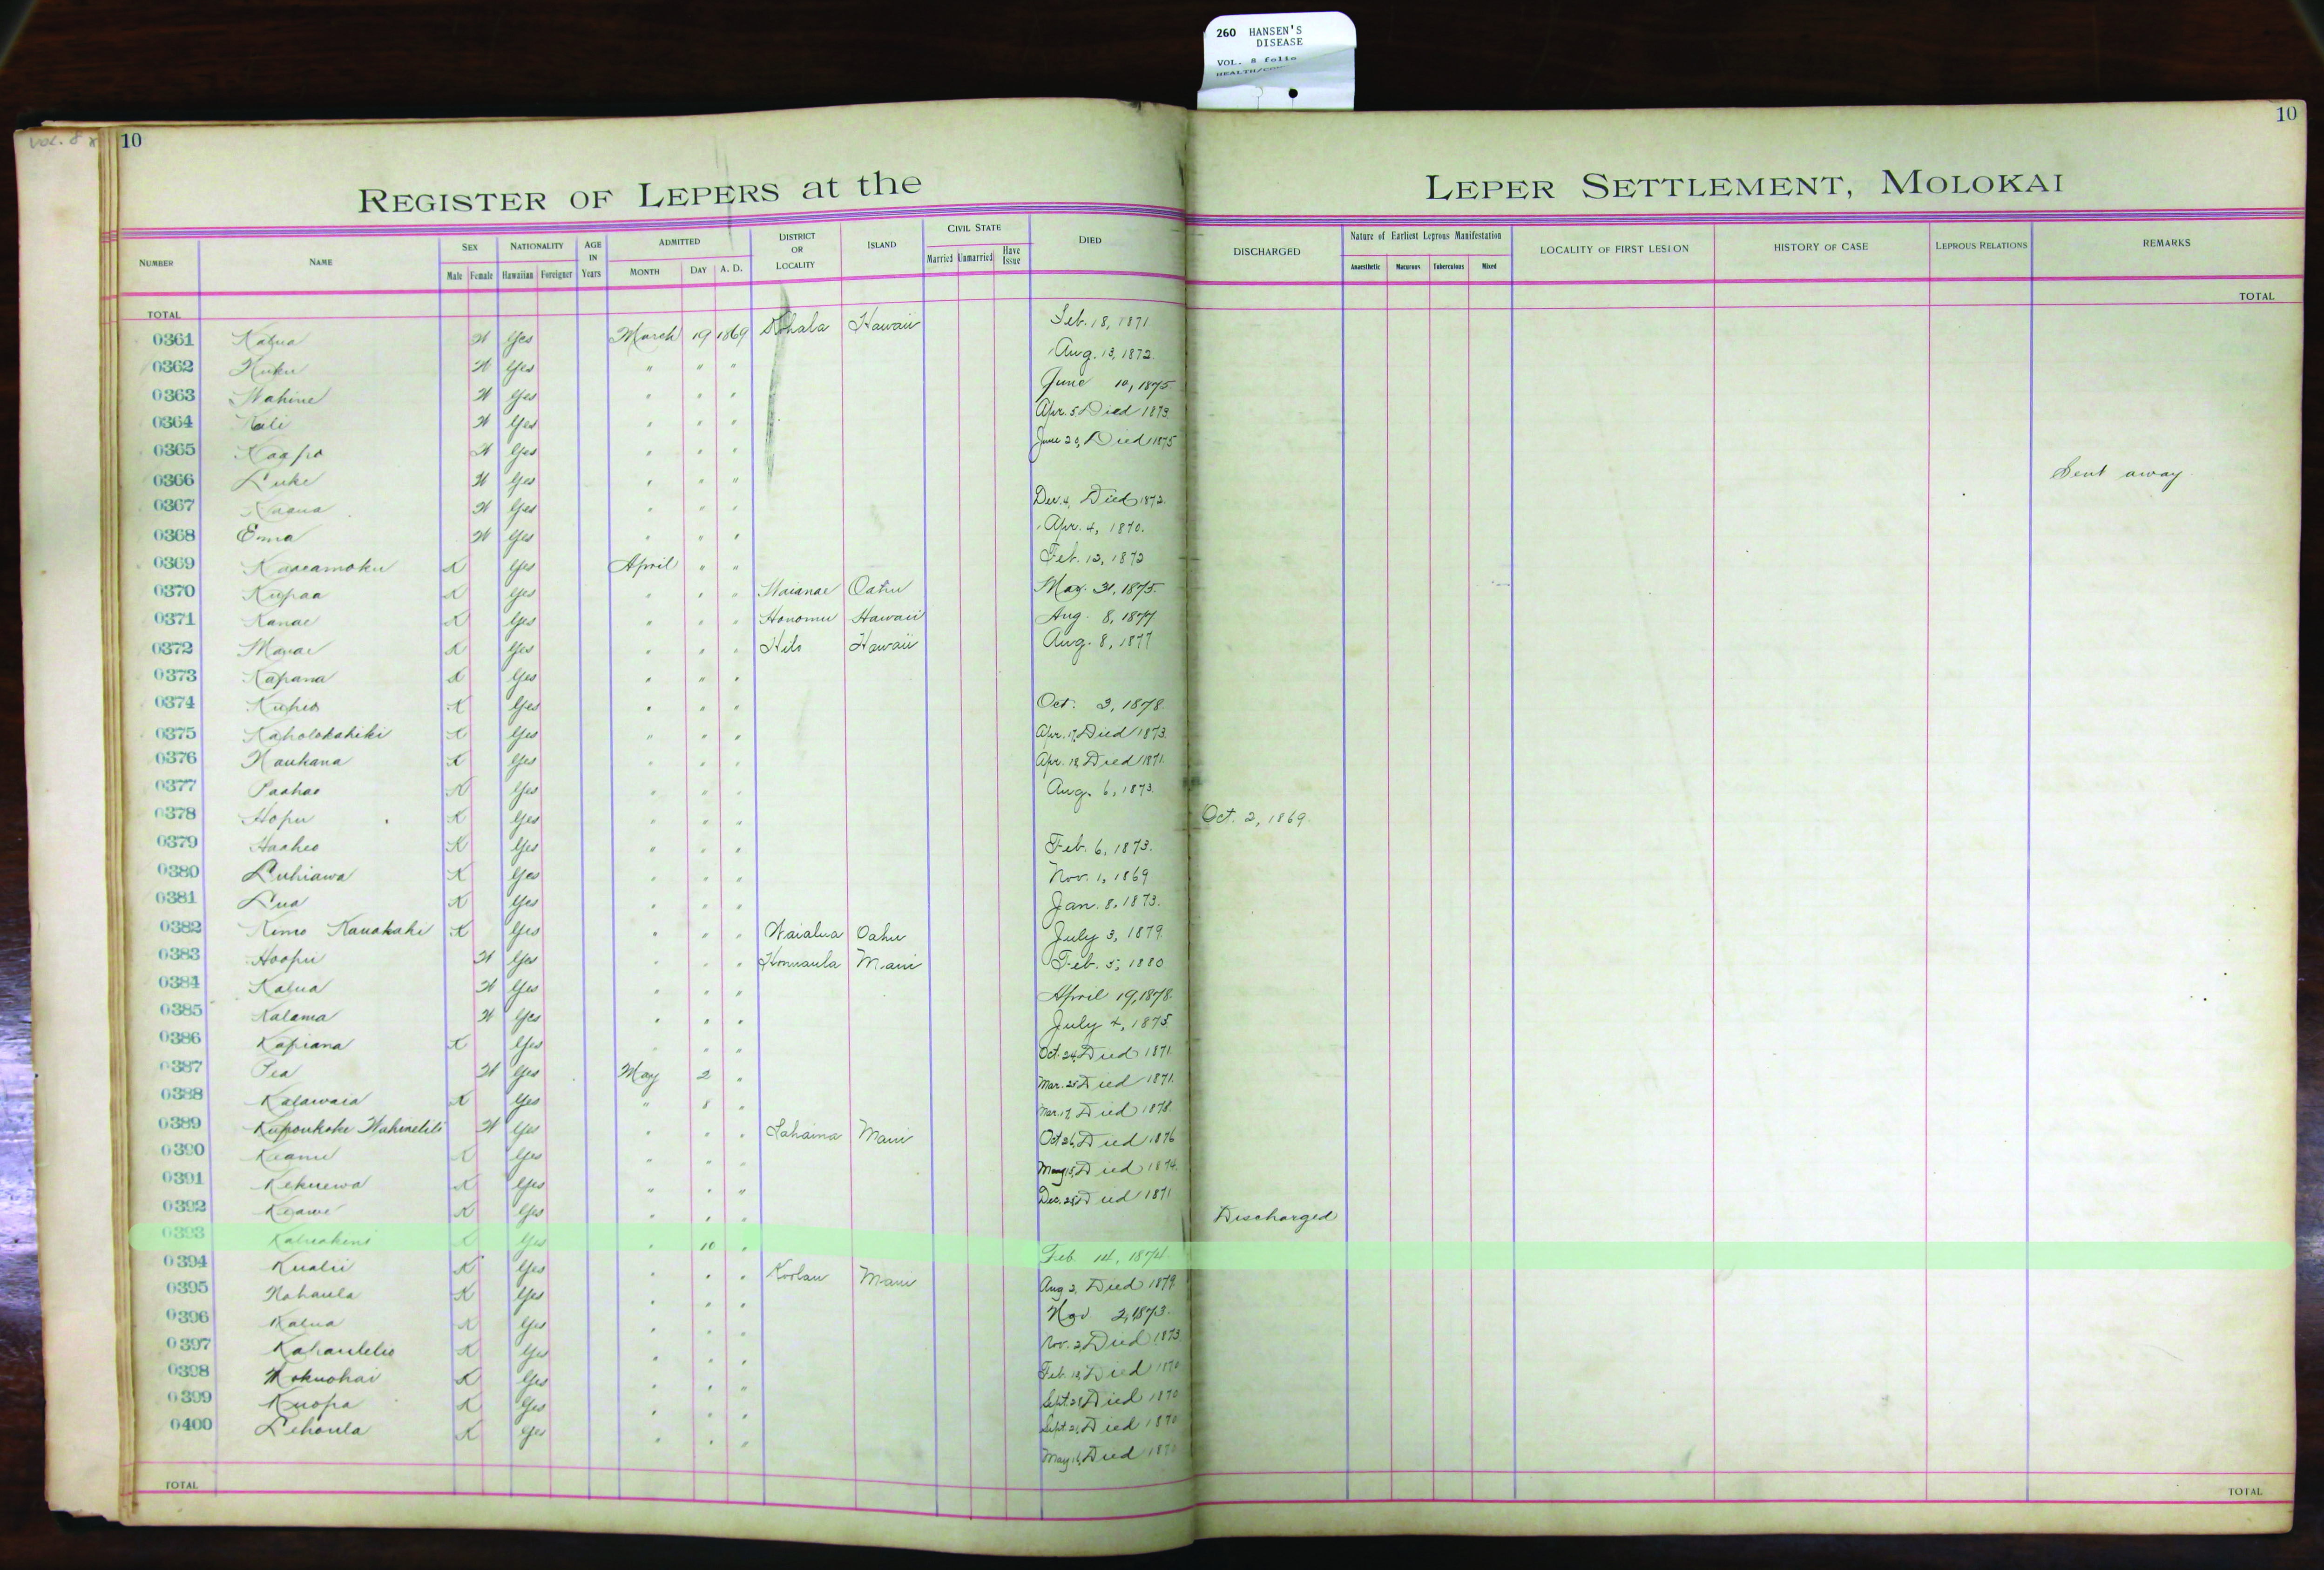 260 HANSEN'S
DISEASE
VOL. 8 folio
VOL. 8
10
10
REGISTER OF LEPERS at the LEPER SETTLEMENT, MOLOKAI
NUMBER NAME SEX Male Female NATIONALITY Hawaiian Foreigner AGE IN Years ADMITTED MONTH DAY A. D. DISTRICT OR LOCALITY ISLAND CIVIL STATE Married Unmarried Have Issue DIED DISCHARGED Nature of Earliest Leprous Manifestation Anaesthetic Macurous Tuberculous Mixed LOCALITY OF FIRST LESION HISTORY OF CASE LEPROUS RELATIONS REMARKS
TOTAL TOTAL
0361 Kalua W Yes March 19 1869 Kohala Hawaii Feb. 18, 1871
0362 W Yes " " " Aug. 13, 1872.
0363 Wahine W Yes " " " June 10, 1875
0364 Kali W Yes " " " Apr. 5 Died 1873
0365 Kaapo W Yes " " " June 20, Died 1875
0366 Luke W Yes " " " Sent away
0367 W Yes " " " Dec. 4, Died 1872.
0368 Ema W Yes " " " Apr. 4, 1870.
0369 Kaaeamoku K Yes April " " Feb. 12, 1872
0370 Kupaa K Yes " " " Waianae Oahu May. 31, 1875.
0371 Kanae K Yes " " " Honomu Hawaii Aug. 8, 1877
0372 K Yes " " " Hilo Hawaii Aug. 8, 1877
0373 Kapana K Yes " " "
0374 Kuheo K Yes " " " Oct. 3, 1878.
0375 Kaholokahiki K Yes " " " Apr. 17, Died 1873
0376 Naukana K Yes " " " Apr. 18 Died 1871.
0377 Paahao K Yes " " " Aug. 6, 1873.
0378 Hopu K Yes " " " Oct. 2, 1869.
0379 Haaheo K Yes " " " Feb. 6, 1873.
0380 Luhiawa K Yes " " " Nov. 1, 1869
0381 Lua K Yes " " " Jan. 8, 1873.
0382 Kimo Kauakahi K Yes " " " Waialua Oahu July 3, 1879
0383 Hoopii W Yes " " " Honuaula Maui Feb. 5, 1880
0384 Kalua W Yes " " " April 19, 1878.
0385 Kalama W Yes " " " July 4, 1875
0386 Kapiana K Yes " " " Oct. 24, Died 1871
0387 Pea W Yes May 2 " Mar. 25 Died 1871.
0388 Kalawaia K Yes " 8 " Mar. 17, Died 1878.
0389 Kupoukoki Wahineliili W Yes " " " Lahaina Maui Oct 26, Died 1876
0390 Keanu K Yes " " " May 15, Died 1874.
0391 Kekuewa K Yes " " " Dec. 28 Died 1871
0392 Keawe K Yes " " " Discharged
0393 Kaluakini K Yes " 10 " Feb. 14, 1874.
0394 Kualii K Yes " " " Koolau Maui Aug 2, Died 1879
0395 Nahaula K Yes " " " Nov 2, 1873.
0396 Kalua K Yes " " " Nov. 2, Died 1873
0397 Kahaulelio K Yes " " " Feb. 18, Died 1870
0398 Mokuohai K Yes " " " Sept. 28 Died 1870
0399 Kuopa K Yes " " " Sept. 21, Died 1870
0400 Lehaula K Yes " " " May 16, Died 1870
TOTAL TOTAL